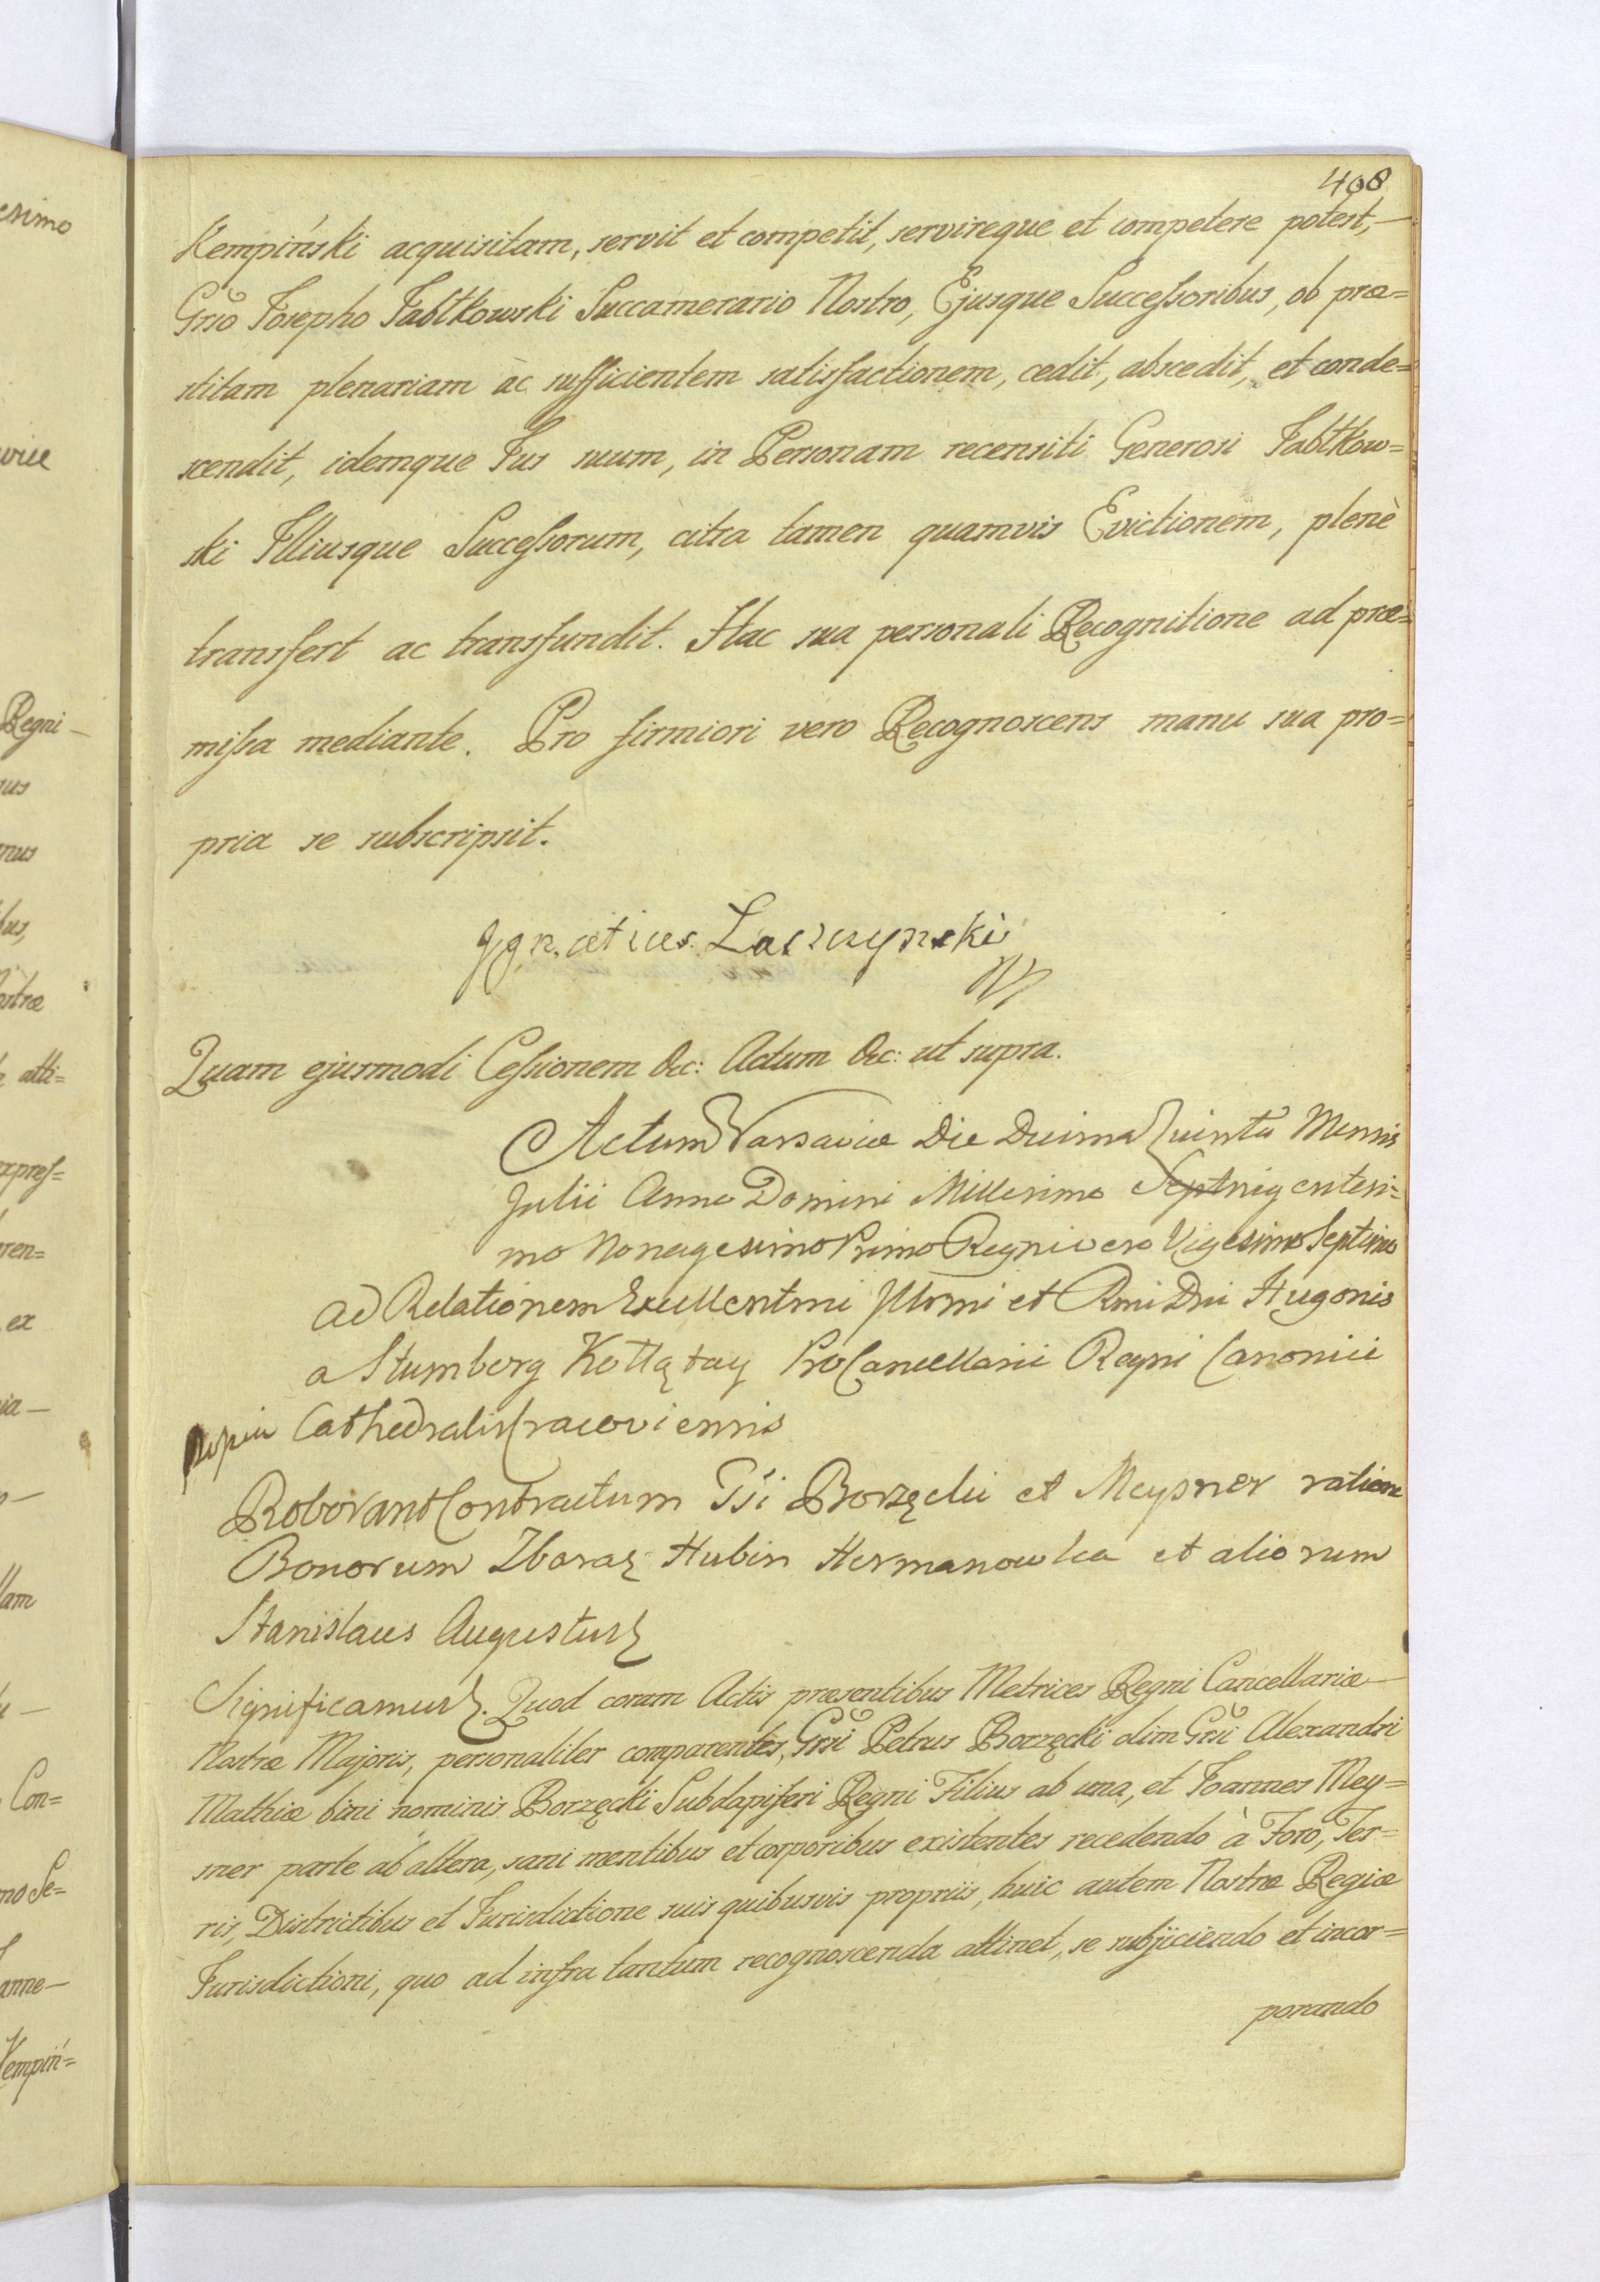 408
Kempiński acquisitam, servit et competit, servireque et competere potest,—
Grso Josepho Jabłkowski Succamerario Nostro, Ejusque Successoribus, ob præ=
stitam plenariam àc sufficientem satisfactionem, cedit, abscedit, et conde=
scendit, idemque Jus suum, in Personam recensiti Generosi Jabłkow=
ski Illiusque Successorum, citra tamen quamvis Evictionem, plenè
transfert ac transfundit. Hac sua personali Recognitione ad præ=
missa mediante. Pro firmiori vero Recognoscens manu sua pro=
pria se subscripsit.
Ignatius Laszczynski
Quam ejusmodi Cessionem &c: Actum &c: ut supra.
Actum Varsaviæ Die Decima Quinta Mensis
Julii Anno Domini Millesimo Septuigentesi=
mo Nonagesimo Primo Regni vero Vigesimo Septimo
ad Relationem Excellentmi Illmi et Rmi Dni Hugonis
a Stumberg Kołłątay ProCancellarii Regni Canonici
Cathedralis Cracoviensis
Roborant Contractum Gsi Borzęcki et Meysner ratione
Bonorum Zbaraz Hubin Hermanowka et aliorum
Stanislaus Augustus
Significamus. Quod coram Actis præsentibus Metrices Regni Cancellariæ—
Nostræ Majoris, personaliter comparentes, Grsi Petrus Borzęcki olim Grsi Alexandri
Mathiæ bini nominis Borzęcki Subdapiferi Regni Filius ab una, et Joannes Mey=
sner parte ab altera, sani mentibus et corporibus existentes recedendo à Foro, Ter=
ris, Districtibus et Jurisdictione suis quibusvis propriis, huic autem Nostræ Regiæ
Jurisdictioni, quo ad infra tantum recognoscenda attinet, se subjiciendo et incor=
porando